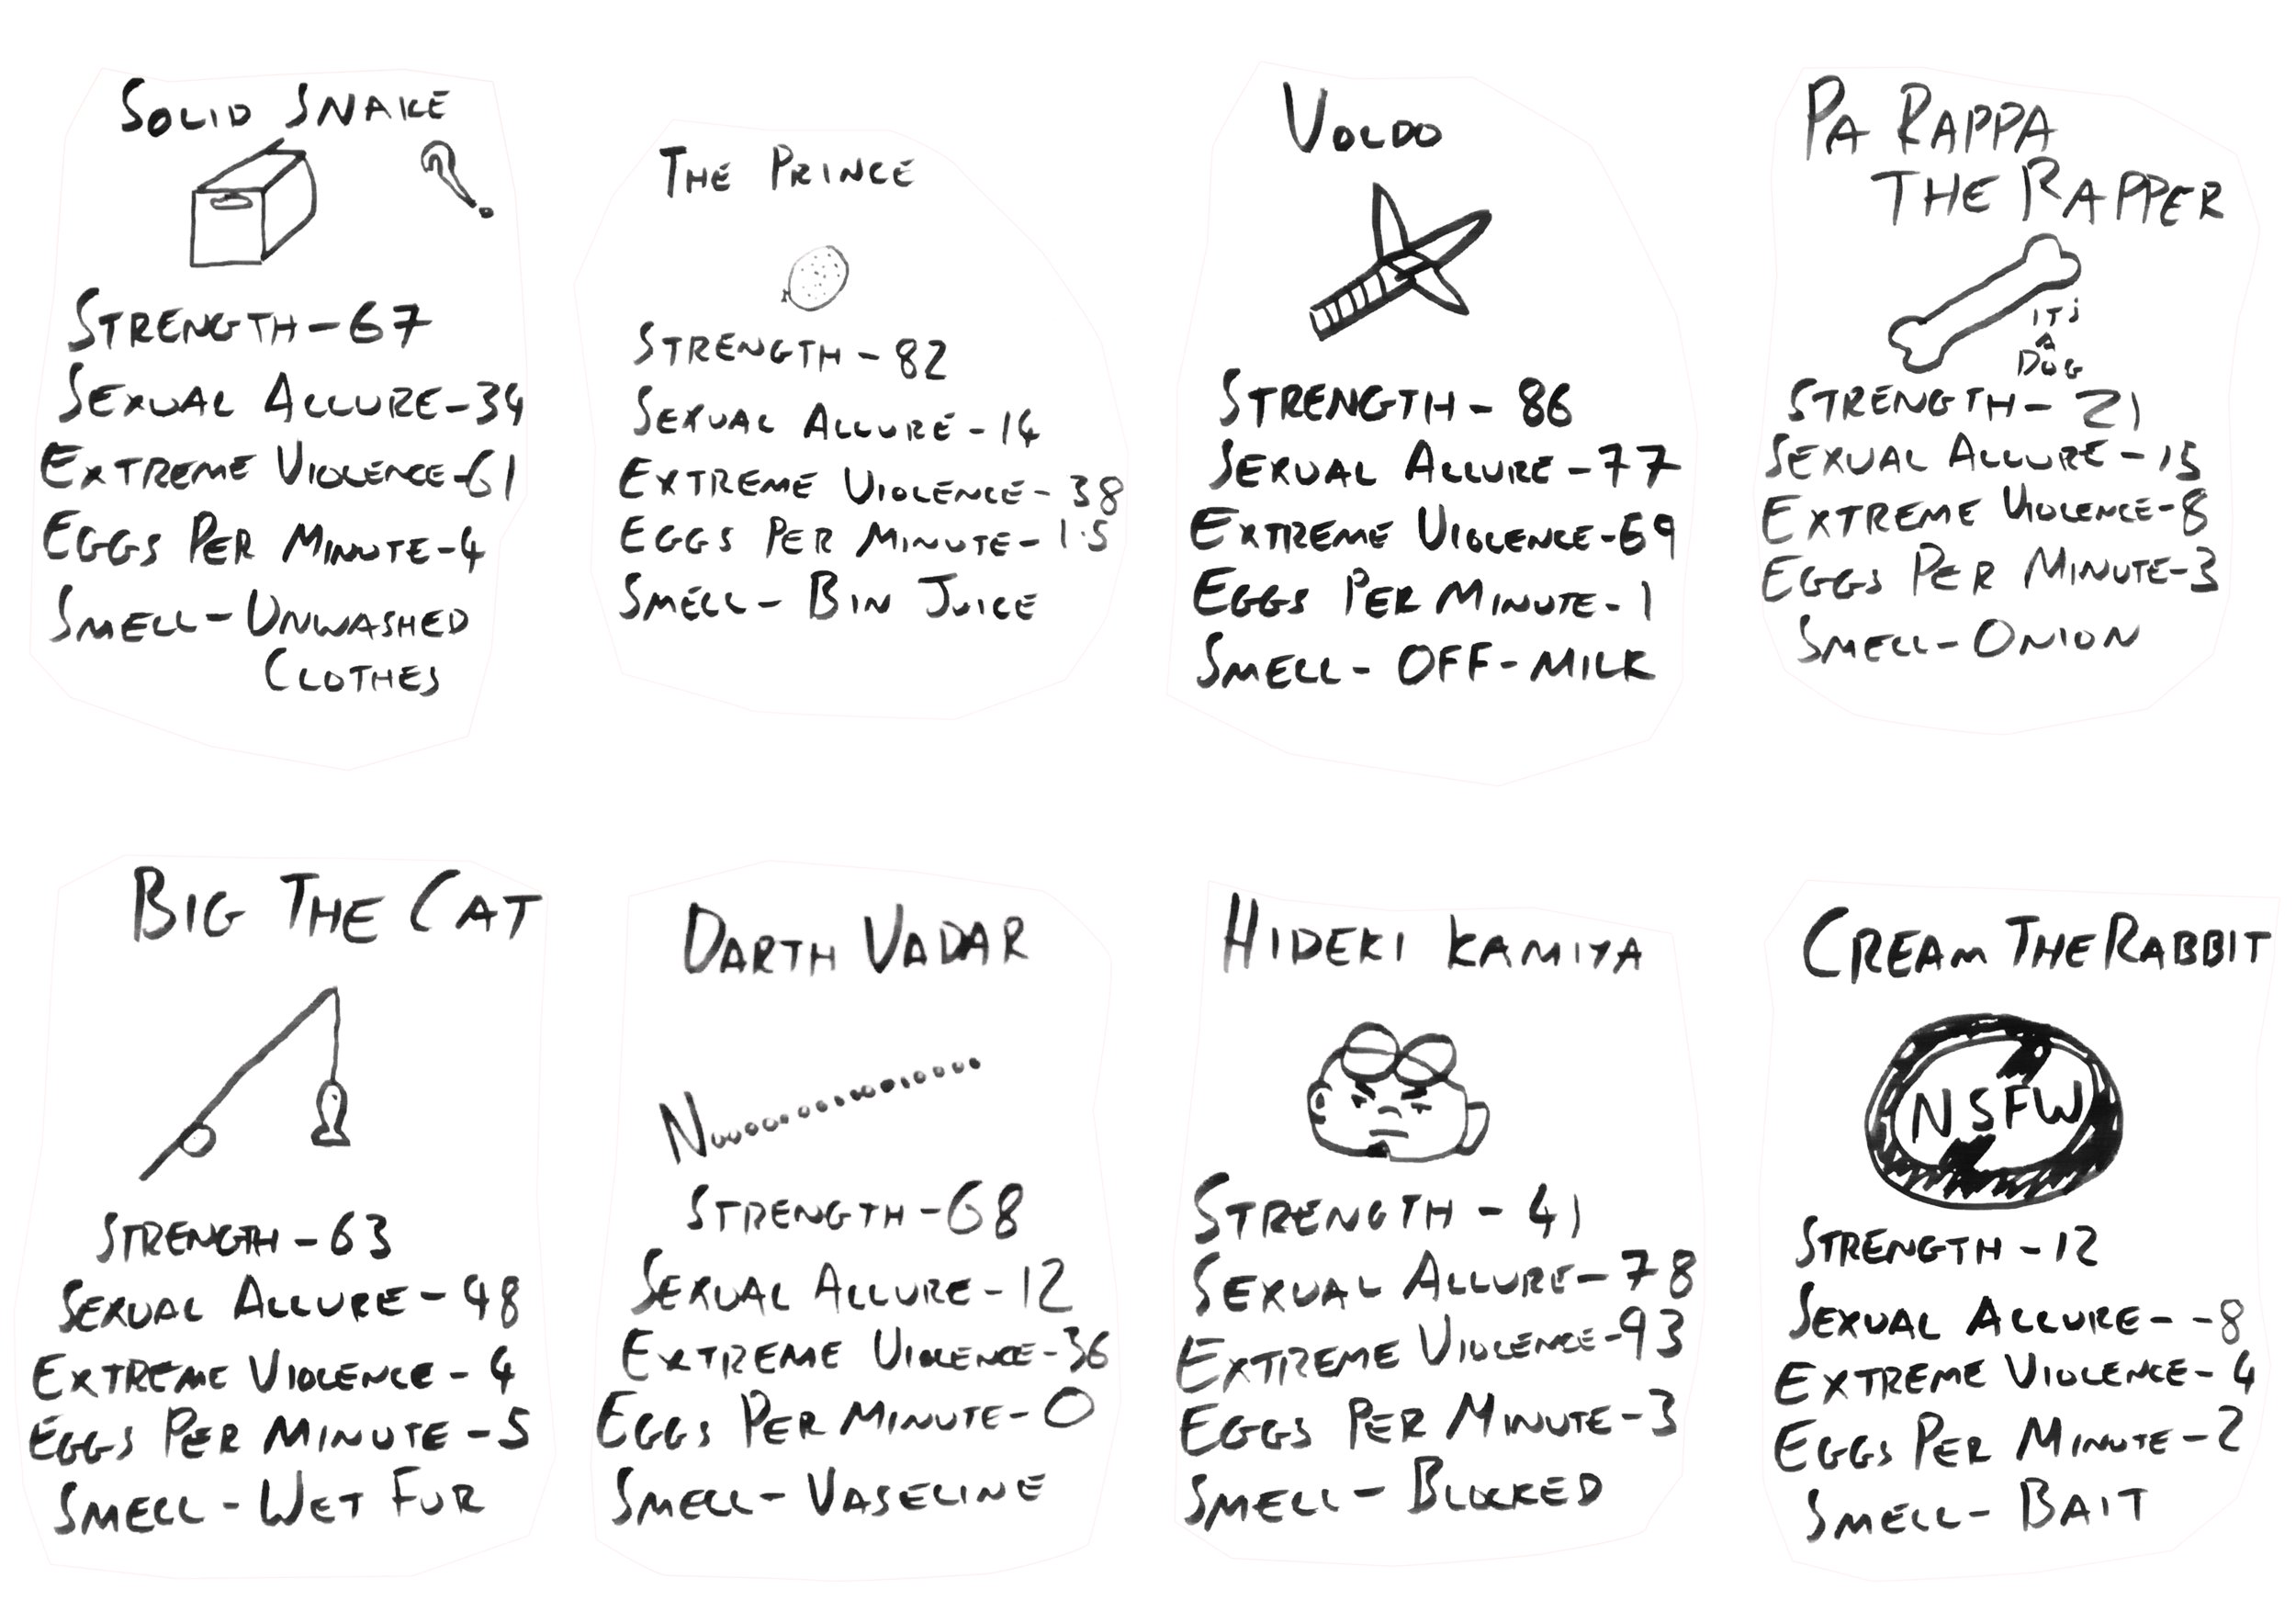 SOLID SNAKE
STRENGTH-67
SEXUAL ALLURE-34
EXTREME VIOLENCE-61
EGGS PER MINUTE-4
SMELL-UNWASHED
CLOTHES
THE PRINCE
STRENGTH-82
SEXUAL ALLURE-14
EXTREME VIOLENCE-38
EGGS PER MINUTE-1.5
SMELL-BIN JUICE
VOLDO
STRENGTH-86
SEXUAL ALLURE-77
EXTREME VIOLENCE-69
EGGS PER MINUTE-1
SMELL-OFF-MILK
PA RAPPA
THE RAPPER
ITS
A
DOG
STRENGTH-21
SEXUAL ALLURE-15
EXTREME VIOLENCE-8
EGGS PER MINUTE-3
SMELL-ONION
BIG THE CAT
STRENGTH-63
SEXUAL ALLURE-48
EXTREME VIOLENCE-4
EGGS PER MINUTE-5
SMELL-WET FUR
DARTH VADAR
STRENGTH-68
SEXUAL ALLURE-12
EXTREME VIOLENCE-36
EGGS PER MINUTE-0
SMELL-VASELINE
HIDEKI KAMIYA
STRENGTH-41
SEXUAL ALLURE-78
EXTREME VIOLENCE-93
EGGS PER MINUTE-3
SMELL-BLOCKED
CREAM THE RABBIT
NSFW
STRENGTH-12
SEXUAL ALLURE--8
EXTREME VIOLENCE-4
EGGS PER MINUTE-2
SMELL-BAIT